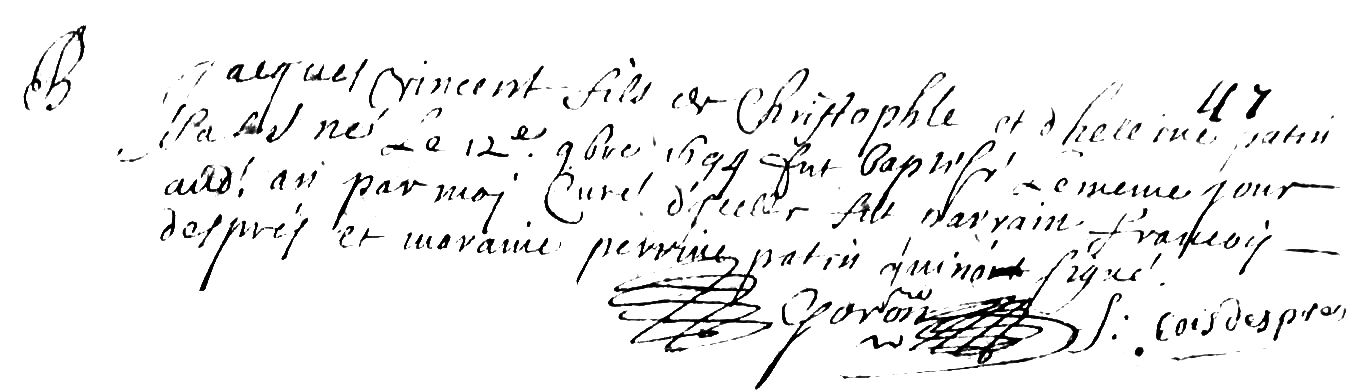 B
47
Jacques vincent fils de Christophle et d heleine patin
né Le 12e. 9bre 1694 fut baptisé Le meme jour
aud. an par moj Curé fut parrain francois
després et maraine perrine patin qui nont signé.
f: cois despres